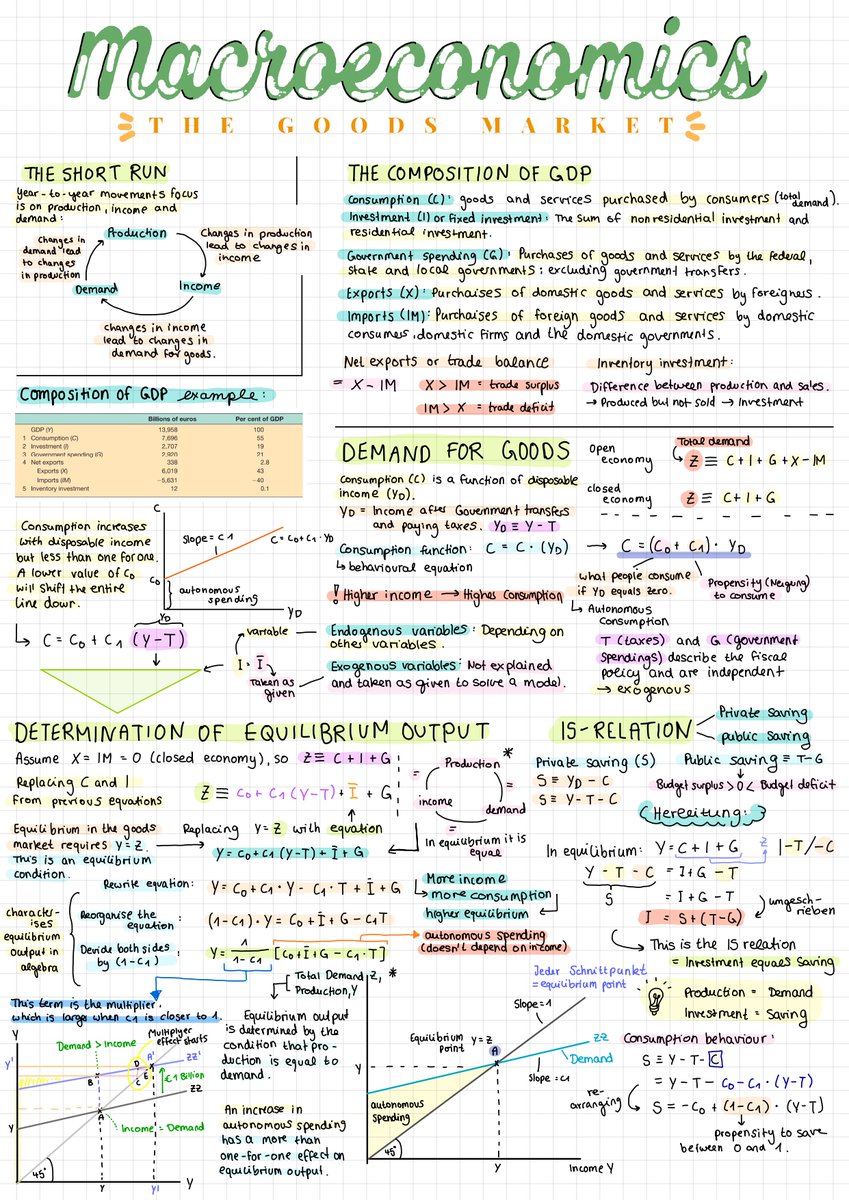 Macroeconomics
THE GOODS MARKET
THE SHORT RUN
Year-to-year movements focus
is on production, income and
demand:
Production
Changes in production
lead to changes in
income
Income
changes in income
lead to changes in
demand for goods.
Demand
Changes in
demand lead
to changes
in production
THE COMPOSITION OF GDP
Consumption (C): goods and services purchased by consumers (total
demand).
Investment (I) or fixed investment: The sum of nonresidential investment and
residential investment.
Government spending (G): Purchases of goods and services by the federal,
state and local governments: excluding government transfers.
Exports (X): Purchaises of domestic goods and services by foreigners.
Imports (IM): Purchaises of foreign goods and services by domestic
consumers, domestic firms and the domestic governments.
Net exports or trade balance
= X - IM
X > IM = trade surplus
IM > X = trade deficit
Inventory investment:
Difference between production and sales.
→ Produced but not sold → Investment
Composition of GDP example:
Billions of euros Per cent of GDP
GDP (Y) 13,958 100
1 Consumption (C) 7,696 55
2 Investment (I) 2,707 19
3 Government spending (G) 2,920 21
4 Net exports 338 2.8
Exports (X) 6,019 43
Imports (IM) -5,631 -40
5 Inventory investment 12 0.1
Consumption increases
with disposable income
but less than one for one.
A lower value of C0
will shift the entire
line down.
C
slope = C1
C = C0 + C1 · YD
C0
autonomous
spending
YD
YD
↳ C = C0 + C1 (Y-T)
variable
I · Ī
Taken as
given
DEMAND FOR GOODS
Consumption (C) is a function of disposable
income (YD).
YD = Income after Government transfers
and paying taxes. YD ≡ Y - T
Consumption function: C = C · (YD) → C = (C0 + C1) · YD
↳ behavioural equation
! Higher income → Highes Consumption
Endogenous variables: Depending on
other variables.
Exogenous variables: Not explained
and taken as given to solve a model.
Open
economy
Total demand
Z ≡ C + I + G + X - IM
closed
economy
Z ≡ C + I + G
what people consume
if YD equals zero.
↳ Autonomous
Consumption
Propensity (Neigung)
to consume
T (taxes) and G (government
spendings) describe the fiscal
policy and are independent
→ exogenous
DETERMINATION OF EQUILIBRIUM OUTPUT
Assume X = IM = 0 (closed economy), so Z ≡ C + I + G
Replacing C and I
from previous equations
Z ≡ C0 + C1 (Y-T) + Ī + G
Equilibrium in the goods
market requires Y = Z.
This is an equilibrium
condition.
Replacing Y = Z with equation
Y = C0 + C1 (Y-T) + Ī + G
Production *
=
demand
=
income
=
In equilibrium it is
equal
Rewrite equation:
Y = C0 + C1 · Y - C1 · T + Ī + G
More income
more consumption
higher equilibrium
characterises
equilibrium
output in
algebra
Reorganise the
equation:
(1-C1) · Y = C0 + Ī + G - C1T
Devide both sides
by (1-C1)
Y = 1/(1-C1) [C0 + Ī + G - C1 · T]
autonomous spending
(doesn't depend on income)
This term is the multiplier.
which is large when C1 is closer to 1.
Y
Multiplyer
effect starts
Demand > Income
Y'
D
A'
ZZ'
B
E
C
€1 Billion
ZZ
A
Y
Income = Demand
45°
Y
Y'
Y
Equilibrium output
is determined by the
condition that pro-
duction is equal to
demand.
An increase in
autonomous spending
has a more than
one-for-one effect on
equilibrium output.
Total Demand Z, *
Production, Y
Jeder Schnittpunkt
= equilibrium point
Slope = 1
Equilibrium
Point
Y = Z
A
ZZ
Demand
Slope = C1
Y
autonomous
spending
45°
Y
Income Y
IS-RELATION
Private saving
public saving
Private saving (S)
S ≡ YD - C
S ≡ Y - T - C
Public saving ≡ T - G
Budget surplus > 0 < Budget deficit
(Hereitung:)
In equilibrium: Y = C + I + G Z |-T/-C
Y - T - C = I + G - T
S = I + G - T
I = S + (T-G)
umgesch-
rieben
This is the IS relation
= Investment equals Saving
Production = Demand
Investment = Saving
Consumption behaviour:
S ≡ Y - T - C
= Y - T - C0 - C1 · (Y-T)
re-
arranging
S = -C0 + (1-C1) · (Y-T)
propensity to save
between 0 and 1.